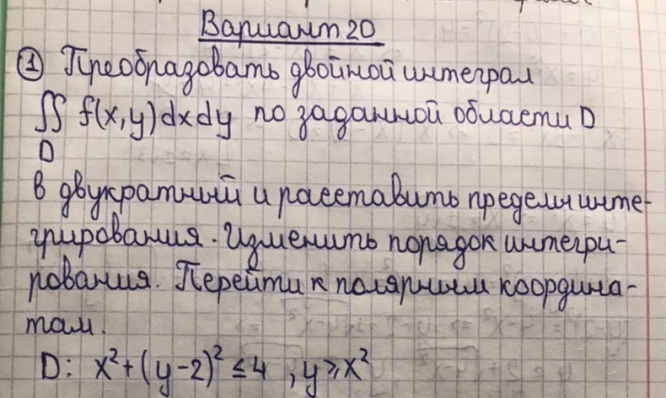 Вариант 20
① Преобразовать двойной интеграл
∬ f(x,y)dxdy по заданной области D
D
в двукратный и расставить пределы инте-
грирования. Изменить порядок интегри-
рования. Перейти к полярным координа-
там.
D: x²+(y-2)² ≤ 4, y ⩾ x²